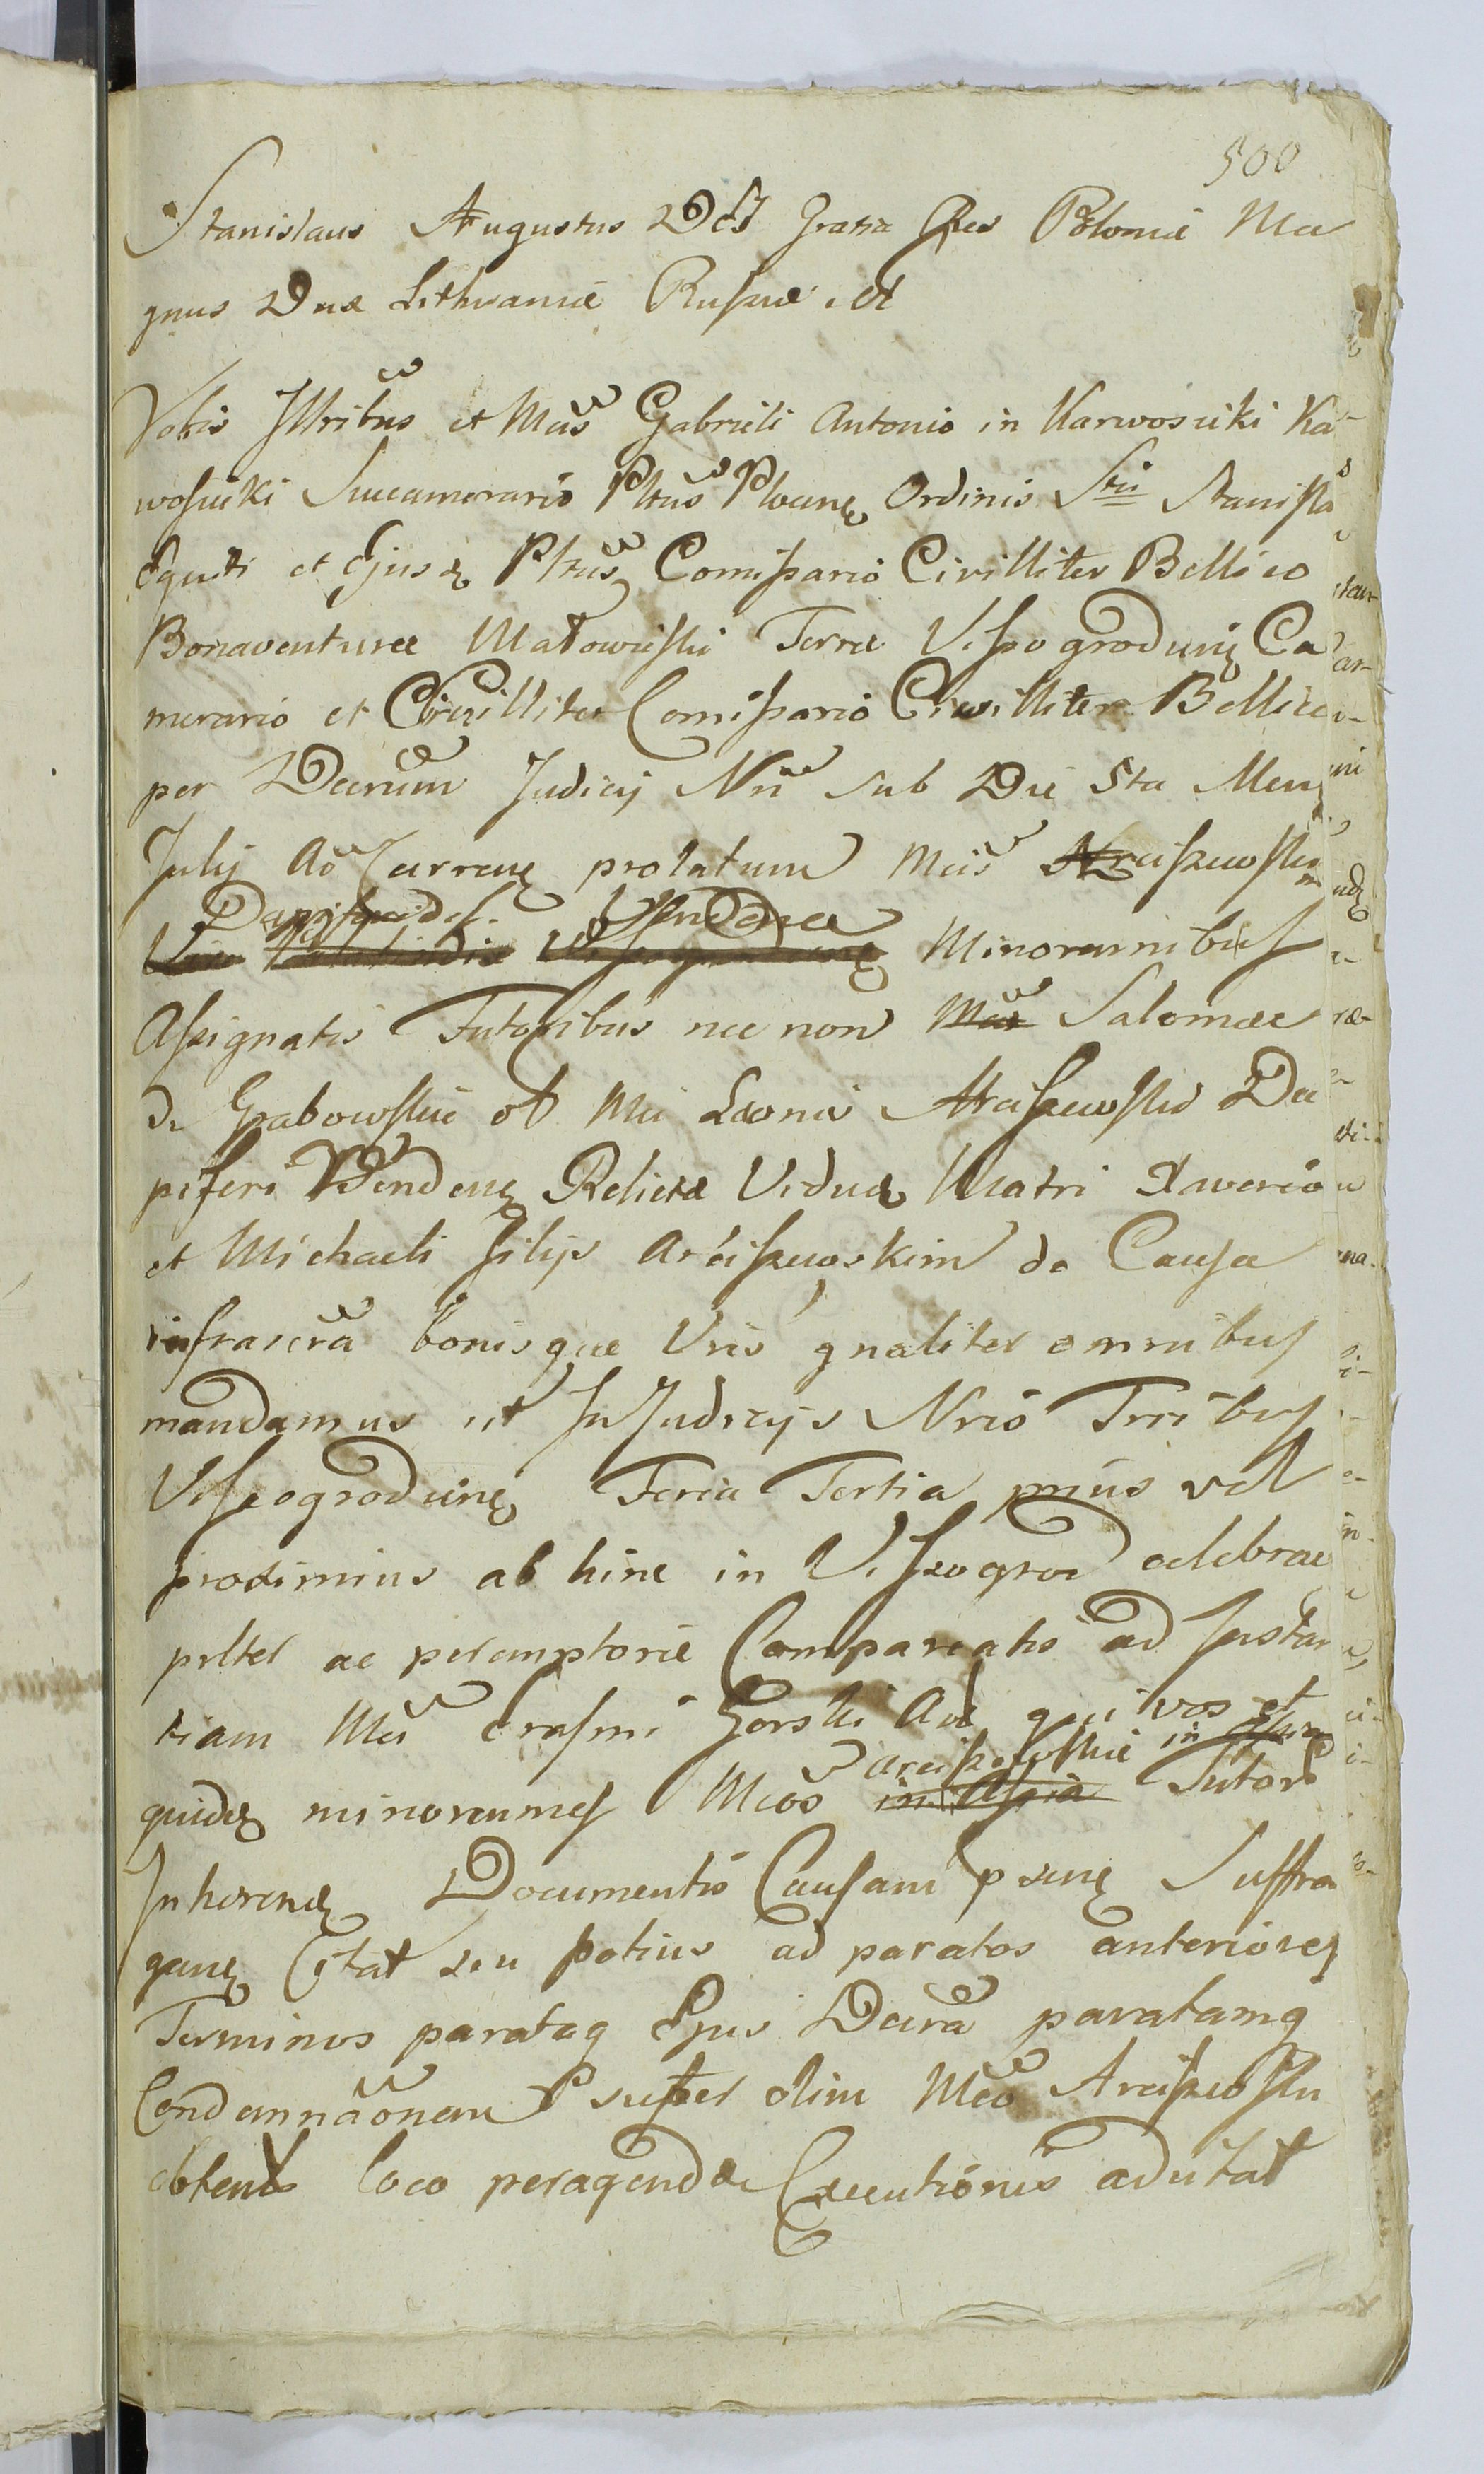 500
Stanislaus Augustus Dei Gratia Rex Poloniæ Ma
gnus Dux Lithvaniæ Rußiæ, et
Vobis Jllribus et Mcis Gabrieli Antonio in Karwosieki Ka
wosieki Succamerario Pltus Plocens Ordinis Sti Stanisla
Equiti et Ejusd Pltus Comißario Civilliter Bellico
Bonaventuræ Makowieski Terræ Vißogrodiens Ca
merario et Civilliter Comißario Civilliter Bellico
per Decrum Judicij Nri sub Die 5ta Mens
Julij Ao Currens prolatum Mcis Arcißewskim
Dapiferides Vendens
Minorennibus
Aßignatis Tutoribus nec non Mcæ Salomeæ
de Grabowskie ol Mci Leonis Arcißewski Da
piferi Vendens Relictæ Viduæ Matri Xaverio
et Michaeli filijs Arcißewskim de Causa
infrascra bonisque Vris gnaliter omnibus
mandamus ut In Judicijs Nris Trribus
Vißogrodiens Feria Tertia prius vel
proximius ab hinc in Vißogrod celebran
prltel ac peremptorie Compareatis ad Instan
tiam Mci Erasmi Gorski Act qui vos et
Arcißewskie in
quidem minorennes Mcos in Aßia Tutor
Inherend Documentis Causam psens Suffra
gans Citat seu potius ad paratos anteriores
Terminos parataq Ejus Decra paratamq
Condemnãonem super olim Mco Arcißewski
obtent loco peragendæ Executionis adcitat